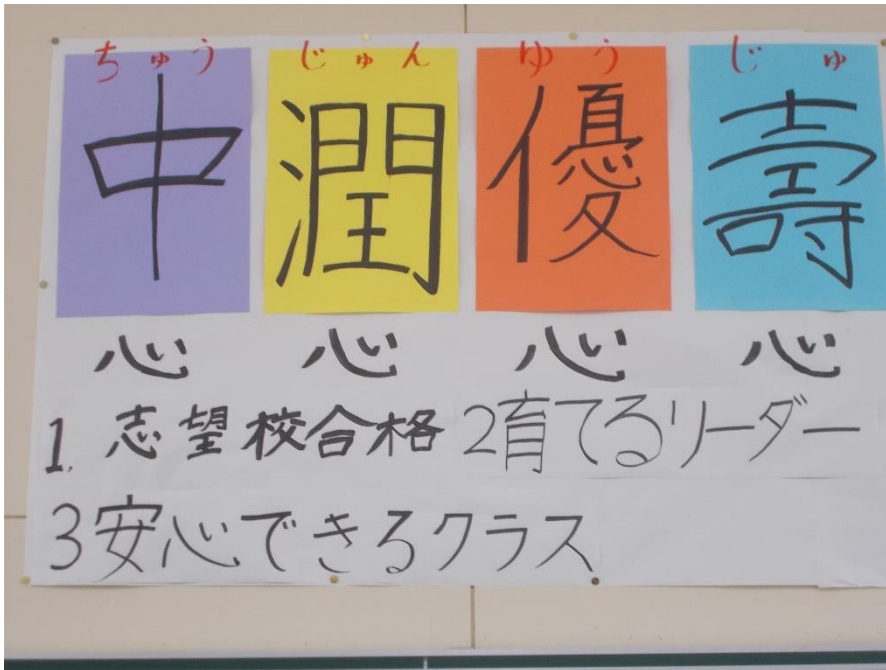 ちゅう じゅん ゆう じゅ
中 潤 優 壽
心 心 心 心
1, 志望校合格 2育てるリーダー
3安心できるクラス